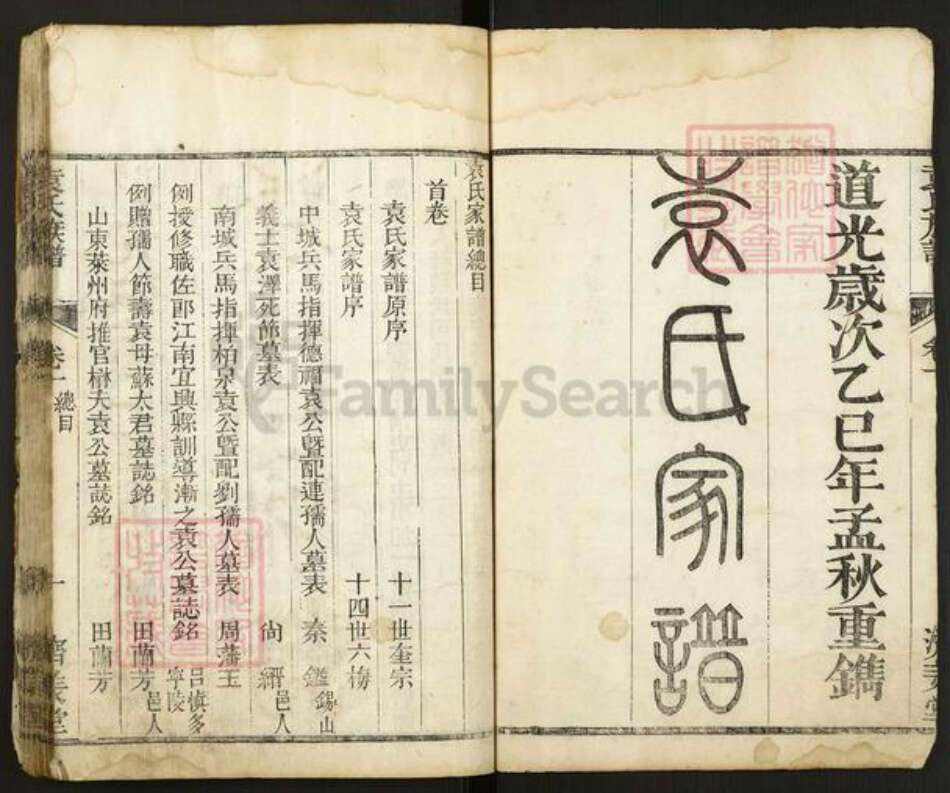 道光歲次乙巳年孟秋重鐫
袁氏家譜
袁氏家譜總目
首卷
袁氏家譜原序 十一世奎宗
袁氏家譜序 十四世六梅
中城兵馬指揮德福袁公暨配連孺人墓表 秦鑑 錫山
義士袁澤死節墓表 尙絅 邑人
南城兵馬指揮柏泉袁公暨配劉孺人墓表 周藩王
例授修職佐郎江南宜興縣訓導漸之袁公墓誌銘 呂慎多 寧陵
例贈孺人節壽袁母蘇太君墓誌銘 田蘭芳 邑人
山東萊州府推官楙夫袁公墓誌銘 田蘭芳
袁氏族譜 卷一 總目 一
FamilySearch